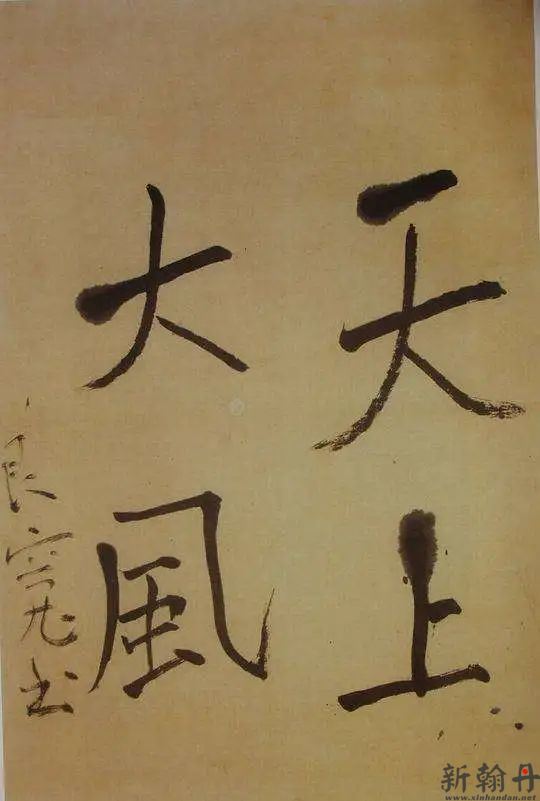 天上
大風
良寛書
新翰丹
www.xinhandan.net